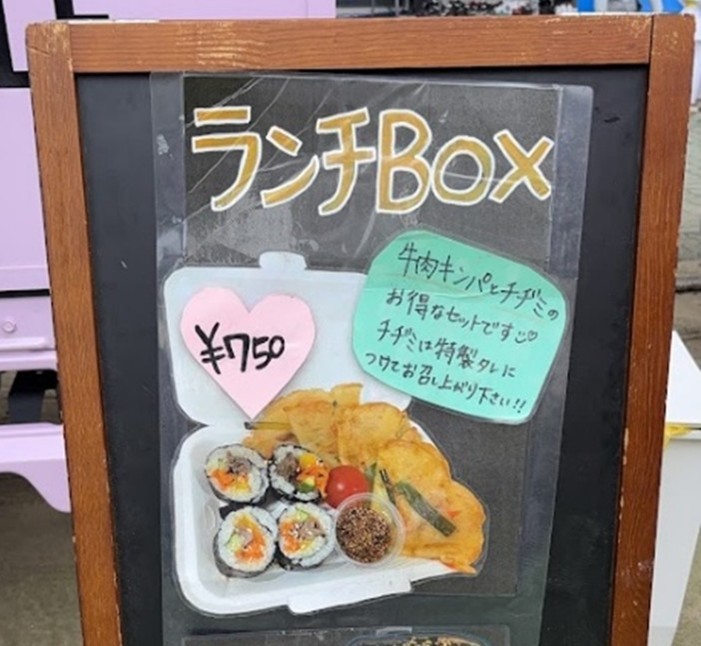 ランチBOX
牛肉キンパとチヂミの
お得なセットです♡
チヂミは特製タレに
つけてお召し上がり下さい!!
¥750